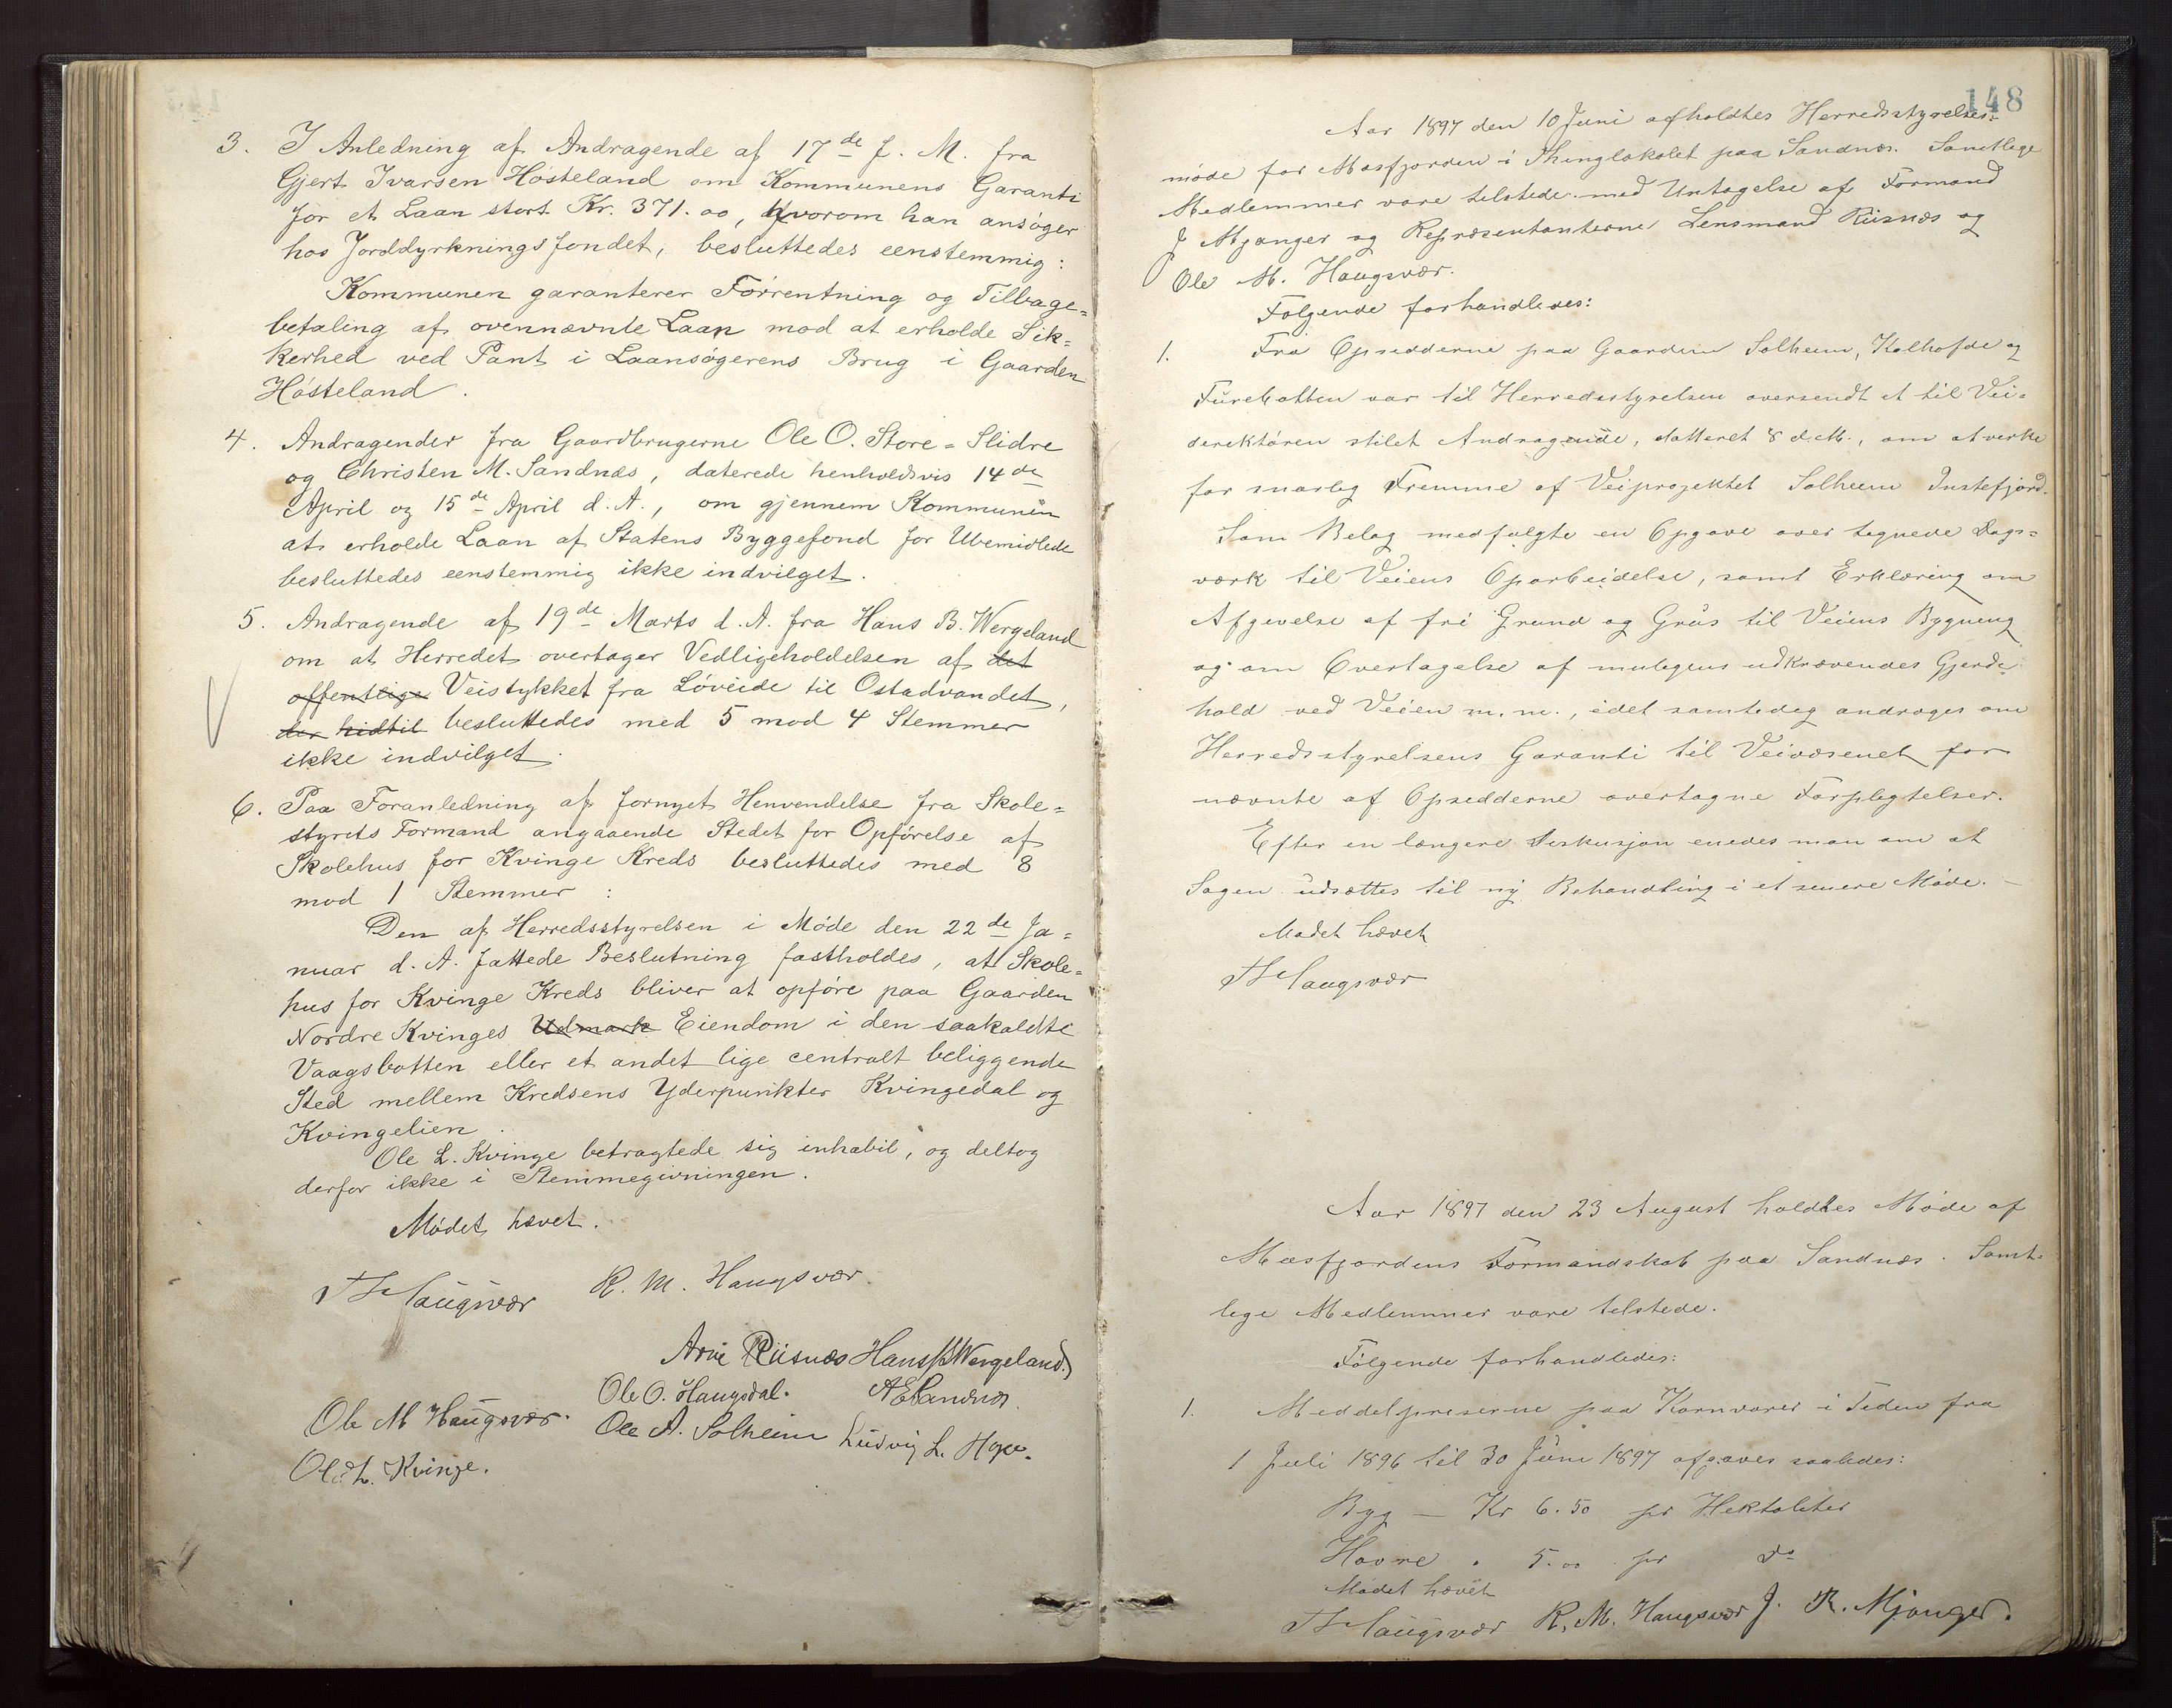 3. I Anledning af Andragende af 17de f. M. fra
Gjert Ivarsen Hosteland om Kommunens Garanti
for et Laan stort Kr. 371.00, hvorom han ansøger
hos Jorddyrkningsfondet, besluttedes eenstemmig:
Kommunen garanterer Forrentning og Tilbage=
betaling af ovennævnte Laan mod at erholde Sik=
kerhed ved Pant i Laansøgerens Brug i Gaarden
Hosteland.
4. Andragender fra Gaardbrugerne Ole O. Store=Slidre
og Christen M. Sandnæs, daterede henholdsvis 14de
April og 15de April d. A., om gjennem Kommunen
at erholde Laan af Statens Byggefond for Ubemidlede
besluttedes eenstemmig ikke indvilget.
5. Andragende af 19de Marts d. A. fra Hans B. Wergeland
om at Herredet overtager Vedligeholdelsen af det
offentlige Veistykket fra Løveide til Ostadvandet,
der hidtil besluttedes med 5 mod 4 Stemmer
ikke indvilget.
6. Paa Foranledning af fornyet Henvendelse fra Skole=
styrets Formand angaaende Stedet for Opførelse af
Skolehus for Kvinge Kreds besluttedes med 8
mod 1 Stemmer:
Den af Herredsstyrelsen i Møde den 22de Ja=
nuar d. A. fattede Beslutning fastholdes, at Skole=
hus for Kvinge Kreds bliver at opføre paa Gaarden
Nordre Kvinges Udmark Eiendom i den saakaldte
Vaagsbotten eller et andet lige centralt beliggende
Sted mellem Kredsens Yderpunkter Kvingedal og
Kvingelien.
Ole L. Kvinge betragtede sig inhabil, og deltog
derfor ikke i Stemmegivningen.
Mødet hævet.
Haugsvær R. M. Haugsvær.
Arne Riisnæs Hans B Wergeland.
Ole O. Haugsdal. A E Sandnæs
Ole M Haugsvær. Ole A. Solheim Ludvig L. Hope.
Ole L. Kvinge.
148
Aar 1897 den 10 Juni afholdtes Herredsstyrelses=
møde for Masfjorden i Thinglokalet paa Sandnæs. Samtlige
Medlemmer vare tilstede med Untagelse af Formand
J Mjanger og Repræsentanterne Lensmand Riisnæs og
Ole M. Haugsvær.
Følgende forhandledes:
1. Fra Opsidderne paa Gaardene Solheim, Kalhofde og
Furebotten var til Herredsstyrelsen oversendt et til Vei=
derektøren stilet Andragende, datteret 8 d. M., om at verke
for snarlig Fremme af Veiprojektet Solheim Instefjord.
Som Belag medfulgte en Opgave over tegnede Dags=
værk til Veiens Oparbeidelse, samt Erklæring om
Afgivelse af fri Grund og Grus til Veiens Bygning
og om Overtagelse af muligens udkrævendes Gjerde=
hold ved Veien m. m., idet samtidig andrages om
Herredsstyrelsens Garanti til Veivæsenet for
nævnte af Opsidderne overtagne Forpligtelser.
Efter en længere Deskusjon enedes man om at
Sagen udsættes til ny Behandling i et senere Møde.
Mødet hævet
Haugsvær
Aar 1897 den 23 August holdtes Møde af
Masfjordens Formandskab paa Sandnæs. Samt=
lige Medlemmer vare tilstede.
Følgende forhandledes:
1. Meddelpriserne paa Kornvarer i Tiden fra
1 Juli 1896 til 30 Juni 1897 afgaves saaledes:
Byg — Kr 6.50 pr Hektoliter
Havre " 5.00 pr do
Mødet hævet
Haugsvær R. M. Haugsvær J. R. Mjanger.